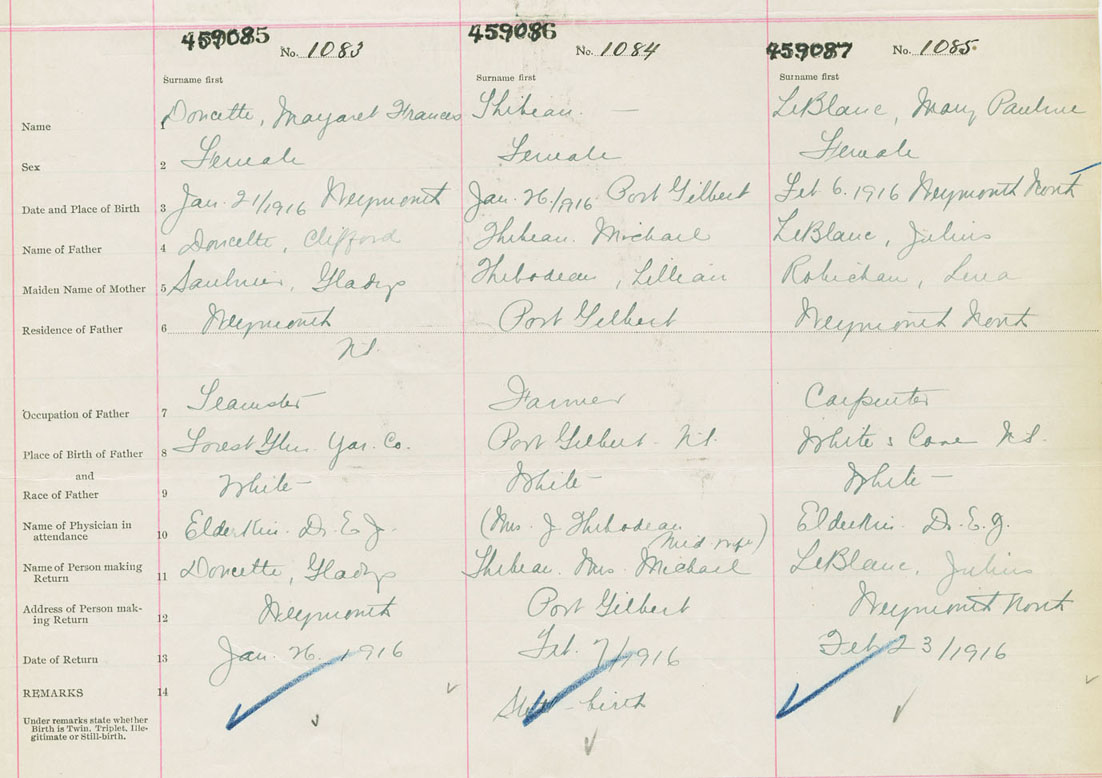 459085 No. 1083 459086 No. 1084 459087 No. 1085
Surname first Surname first Surname first
Name 1 Doucette, Margaret Frances Thibeau — LeBlanc, Mary Pauline
Sex 2 Female Female Female
Date and Place of Birth 3 Jan. 21/1916 Weymouth Jan. 26/1916 Port Gilbert Feb 6. 1916 Weymouth North
Name of Father 4 Doucette, Clifford Thibeau. Michael LeBlanc, Julius
Maiden Name of Mother 5 Saulnier, Gladys Thibodeau, Lillian Robichau, Lena
Residence of Father 6 Weymouth Port Gilbert Weymouth North
N.S.
Occupation of Father 7 Teamster Farmer Carpenter
Place of Birth of Father 8 Forest Glen. Yar. Co. Port Gilbert - N.S. White's Cove N.S.
and
Race of Father 9 White White White
Name of Physician in
attendance 10 Elderkin. Dr. E. J. (Mrs. J Thibodeau Elderkin Dr. E. J.
Mid wife)
Name of Person making
Return 11 Doucette, Gladys Thibeau. Mrs. Michael LeBlanc, Julius
Address of Person mak-
ing Return 12 Weymouth Port Gilbert Weymouth North
Date of Return 13 Jan. 26. 1916 Feb. 7/1916 Feb 23/1916
REMARKS 14
Still-birth
Under remarks state whether
Birth is Twin, Triplet, Ille-
gitimate or Still-birth.